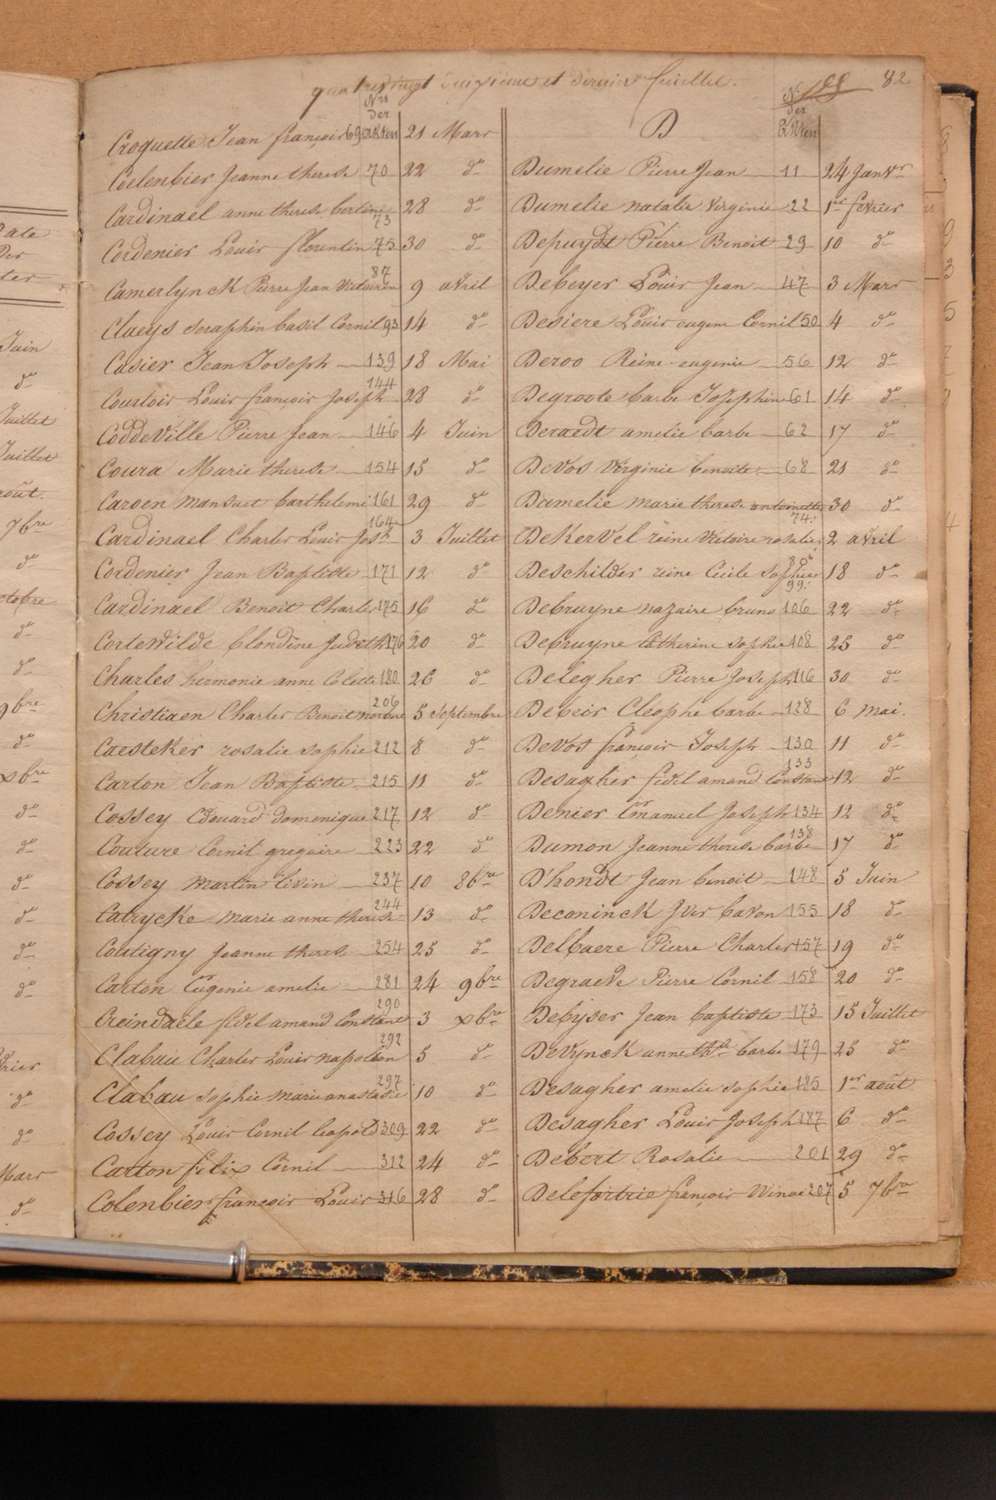 quatre vingt deuxieme et dernier feuillet.
82
Nos
der
akten
Croquette Jean françois 69 21 Mars
Coelenbier Jeanne therese 70 22 do
Cardinael anne therese 73 28 do
Cordenier Louis florentin 75 30 do
Camerlynck Pierre Jean 87 9 avril
Claeys Seraphin basil Cornil 93 14 do
Casier Jean Joseph 139 18 Mai
Courtois Louis françois Joseph 144 28 do
Coddeville Pierre Jean 146 4 Juin
Coura Marie therese 154 15 do
Caroen mansuet barthelemi 161 29 do
Cardinael Charles Louis Josh 164 3 Juillet
Cordenier Jean Baptiste 171 12 do
Cardinael Benoit Charles 175 16 do
Cortewilde blondine Judoth 176 20 do
Charles hermonie anne Colette 180 26 do
Christiaen Charles Benoit 206 5 Septembre
Caesteker rosalie sophie 212 8 do
Carton Jean Baptiste 215 11 do
Cossey Edouard domenique 217 12 do
Couture Cornil gregoire 223 22 do
Cossey martin livin 237 10 8bre
Catrycke marie anne therese 244 13 do
Coutigny Jeanne therese 254 25 do
Carton Eugenie amelie 281 24 9bre
Creindaele fidel amand Constant 290 3 xbre
Clabau Charles Louis napoleon 292 5 do
Clabau sophie marie anastasie 297 10 do
Cossey Louis Cornil leopold 309 22 do
Carton felix Cornil 312 24 do
Colenbier françois Louis 316 28 do
D
No
der
akten
Dumelie Pierre Jean 11 24 Janvr
Dumelie natalie Virginie 22 1er fevrier
Depuydt Pierre Benoit 29 10 do
Debeyer Louis Jean 47 3 Mars
Desiere Louis eugene Cornil 50 4 do
Deroo Reine eugenie 56 12 do
Degroote barbe Josephine 61 14 do
Deraedt amelie barbe 62 17 do
Devos Virginie benoite 68 21 do
Damelie marie therese antoinette 74 30 do
Dekervel reine Victoire rosalie 80 2 avril
Deschilder reine Cecile sophie 99 18 do
Debruyne nazaire bruno 106 22 do
Debruyne Catherine sophie 108 25 do
Delegher Pierre Joseph 116 30 do
Deceir Cleophe barbe 128 6 mai.
Devos françois Joseph 130 11 do
Desagher fidel amand Constant 133 12 do
Denier Emanuel Joseph 134 12 do
Dumon Jeanne therese barbe 138 17 do
D'hondt Jean benoit 148 5 Juin
Deconinck Yver bavon 155 18 do
Delbaere Pierre Charles 157 19 do
Degraeve Pierre Cornil 158 20 do
Debyser Jean baptiste 173 15 Juillet
Devynck anne the barbe 179 25 do
Desagher amelie sophie 185 1er août
Desagher Louis Joseph 187 6 do
Debert Rosalie 201 29 do
Delefortrie françois Winoc 207 5 7bre